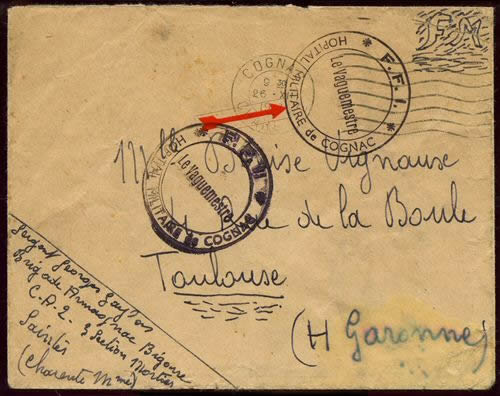 F M
COGNAC
9
26 - X
* F.F.I. *
HOPITAL MILITAIRE de COGNAC
Le Vaguemestre
* F.F.I. *
HOPITAL MILITAIRE de COGNAC
Le Vaguemestre
Mlle
Rue de la Boule
Toulouse
(H Garonne)
Sergent Georges
Brigade Armagnac Bigorre
C.A.2. 3 Section Mortier
Saintes
(Charente Mme)